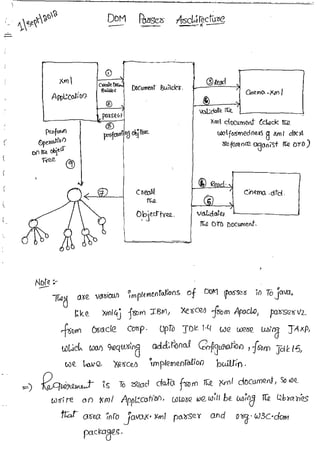 1/sept/2012
DOM Parser Architecture
Xml
Application
①
Create Dom
Builder
②
parse()
③
performing objtree
Document Builder
③ Read
④
validate the
Cinema.xml
Xml document (check the
wellformedness of xml docs
reference against the DTD)
Perform
Operation
on the object
Tree.
⑨
⑦
Create
the
Object tree.
Read
Cinema.dtd.
⑥
validates
the DTD Document.
Note :-
They are various implementations of DOM parser in To java,
like xml4j from IBM, Xerces from Apache, parserv2
from Oracle Corp. Upto JDK 1.4 we were using JAXP,
which was requiring additional Configuration, from Jdk 1.5,
we have Xerces implementation builtin.
=) Requirement is To read data from the xml document, so we
write an xml Application. where we will be using the libraries
that are into javax.xml parser and org.W3C.dom
packages.